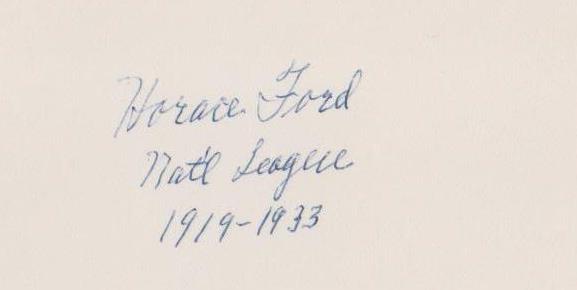 Horace Ford
Nat'l League
1919-1933